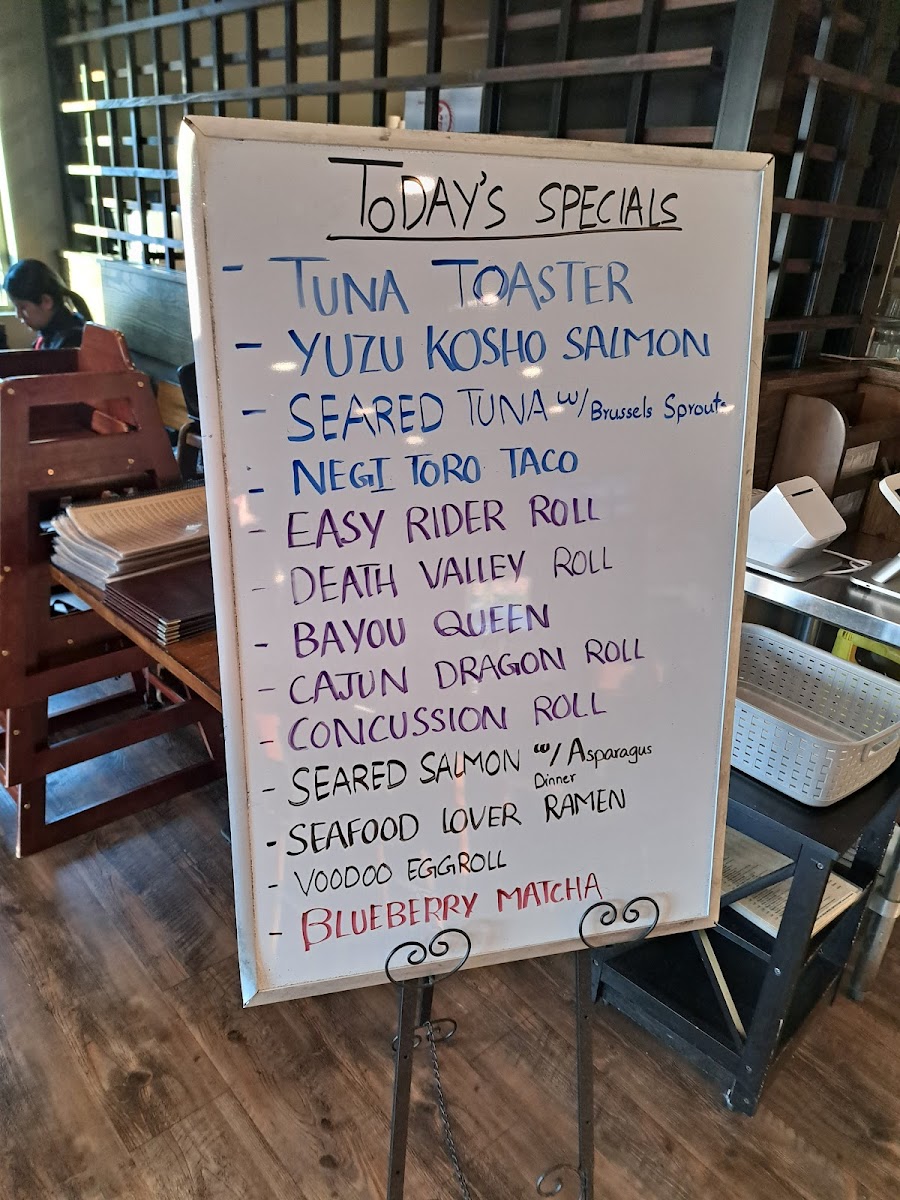 TODAY'S SPECIALS
- TUNA TOASTER
- YUZU KOSHO SALMON
- SEARED TUNA w/ Brussels Sprouts
- NEGI TORO TACO
- EASY RIDER ROLL
- DEATH VALLEY ROLL
- BAYOU QUEEN
- CAJUN DRAGON ROLL
- CONCUSSION ROLL
- SEARED SALMON w/ Asparagus
Dinner
- SEAFOOD LOVER RAMEN
- VOODOO EGGROLL
- BLUEBERRY MATCHA